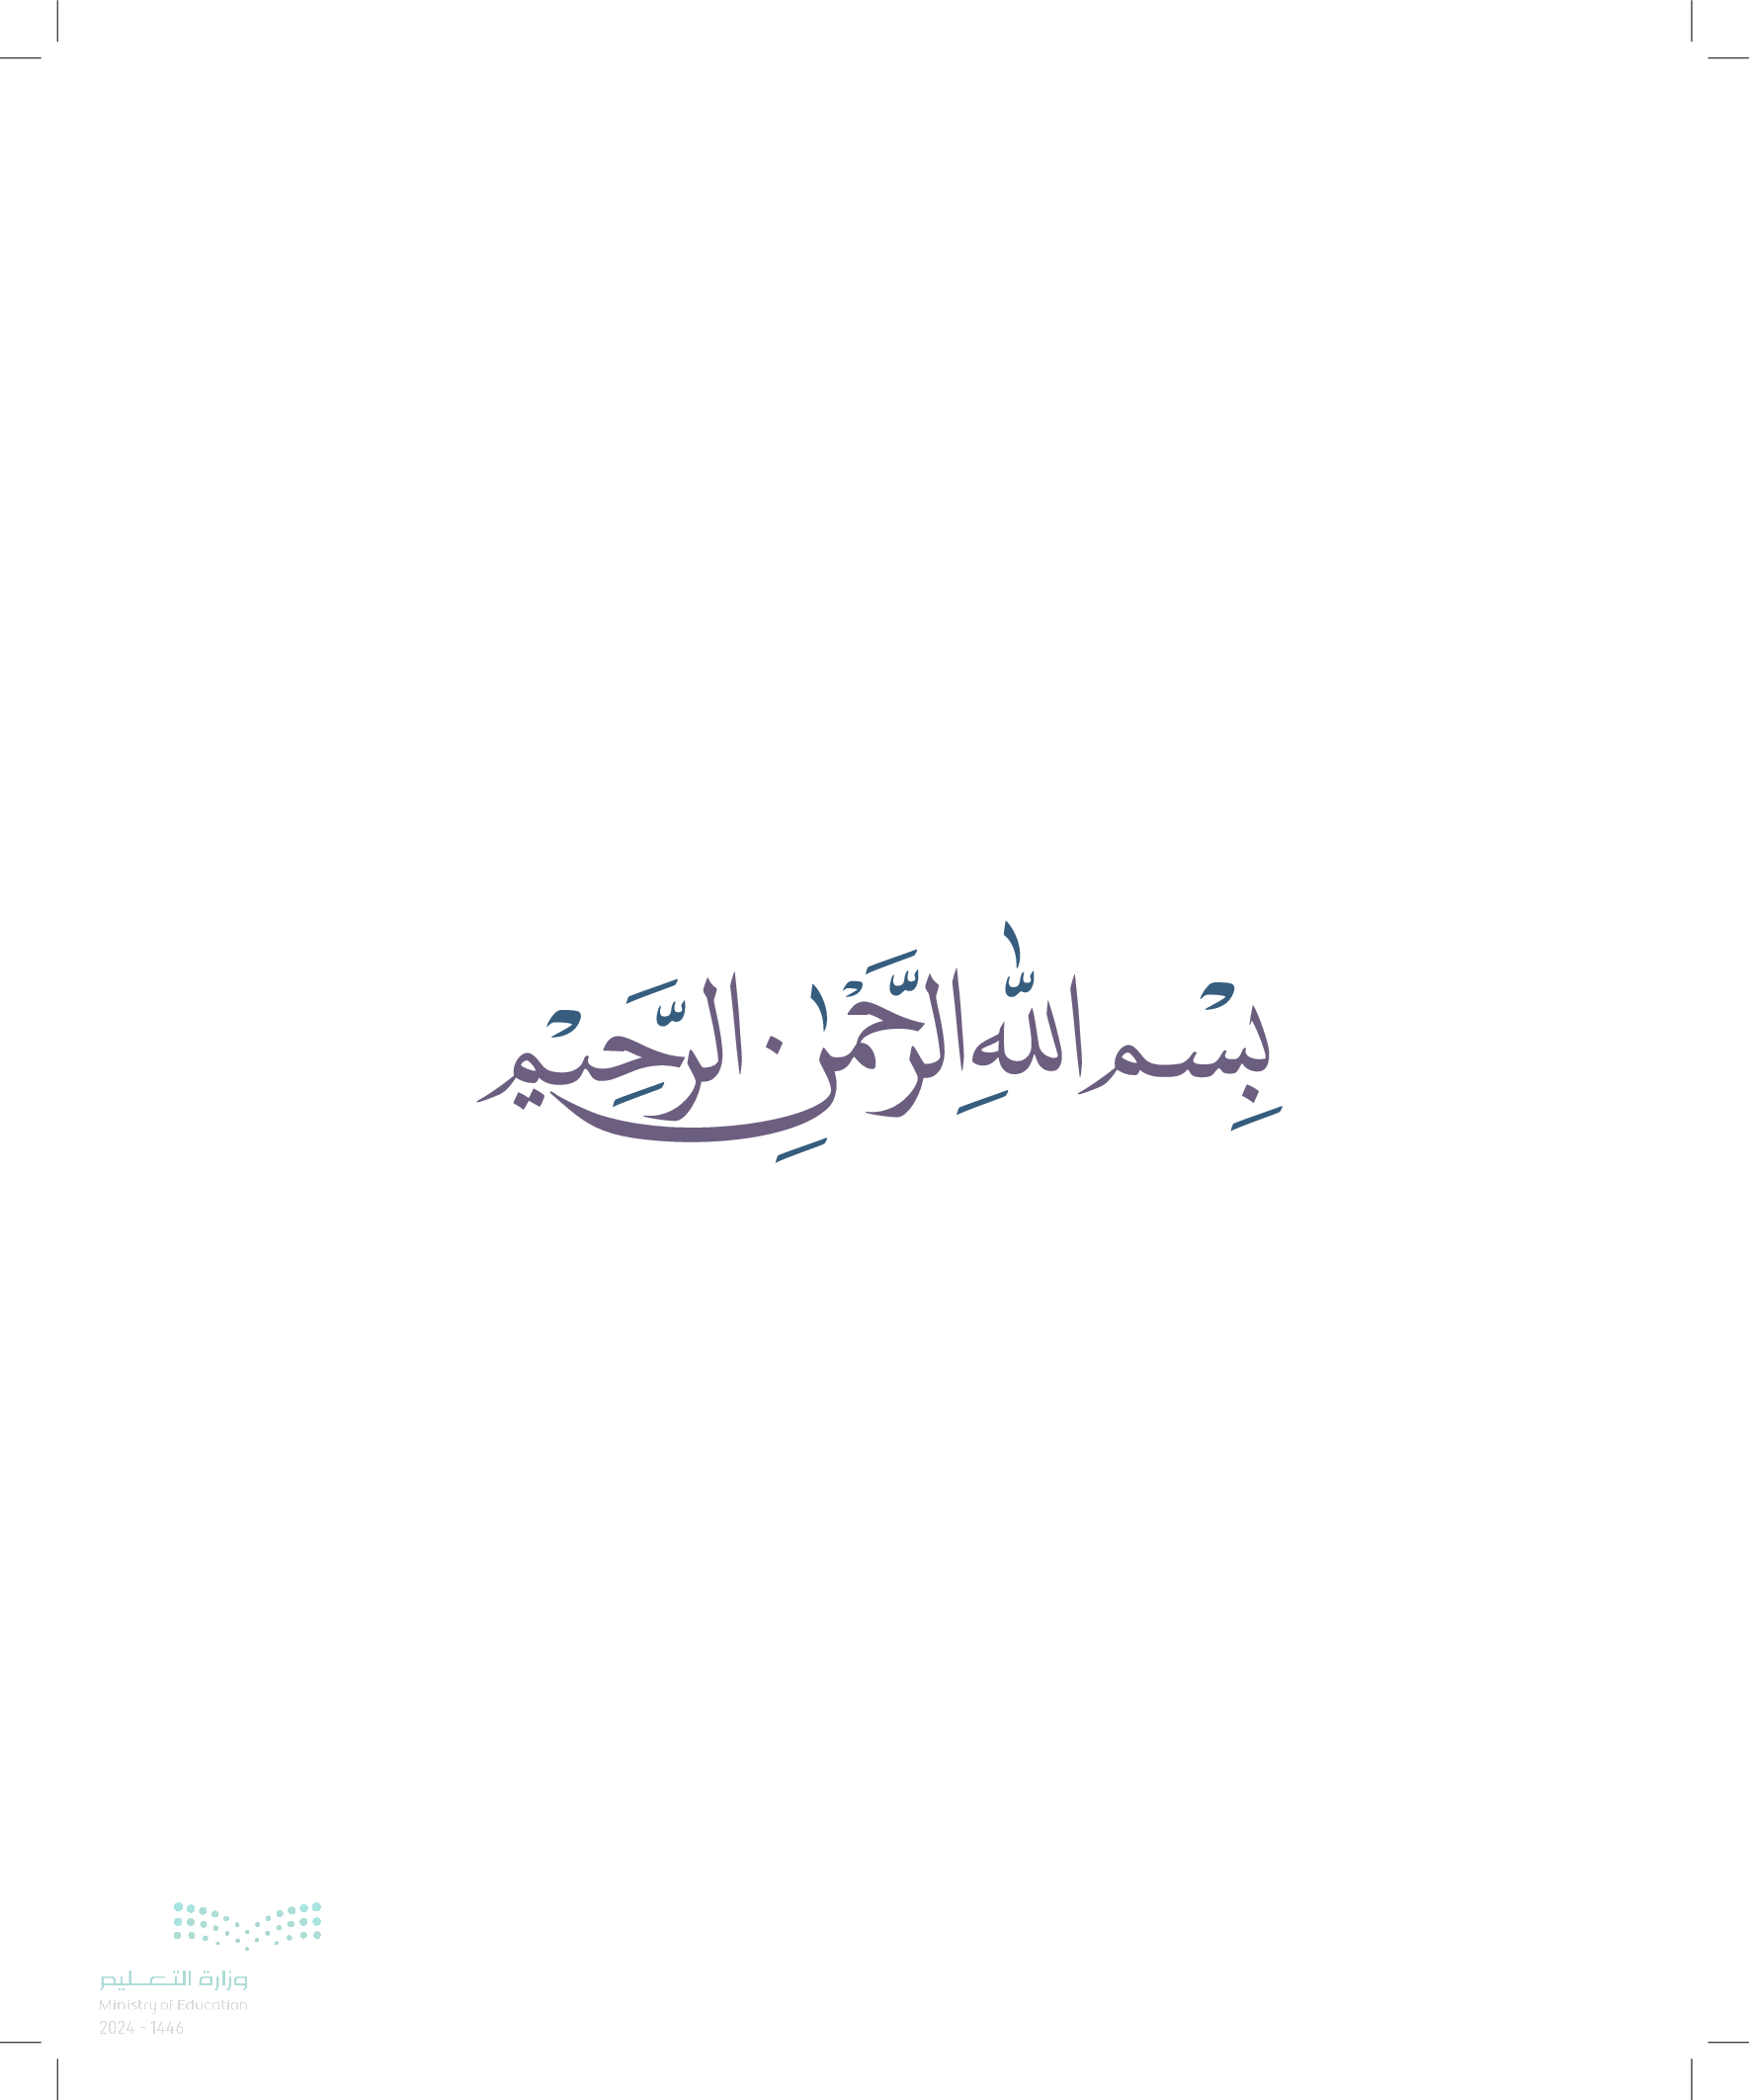 بِسْمِ اللَّهِ الرَّحْمَٰنِ الرَّحِيْمِ
وزارة التعليم
Ministry of Education
2024 - 1446